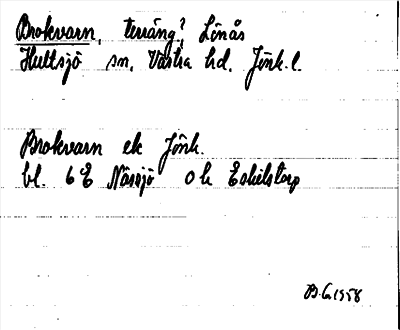 Brokvarn, terräng? Linås
Hultsjö sn, Västra hd, Jönk. l.
Brokvarn ek Jönk.
bl. 6 E Nässjö ok Eskilstorp
B.G. 1958